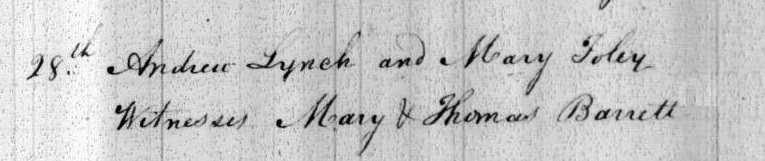 28th Andrew Lynch and Mary Foley
Witnesses Mary & Thomas Barrett